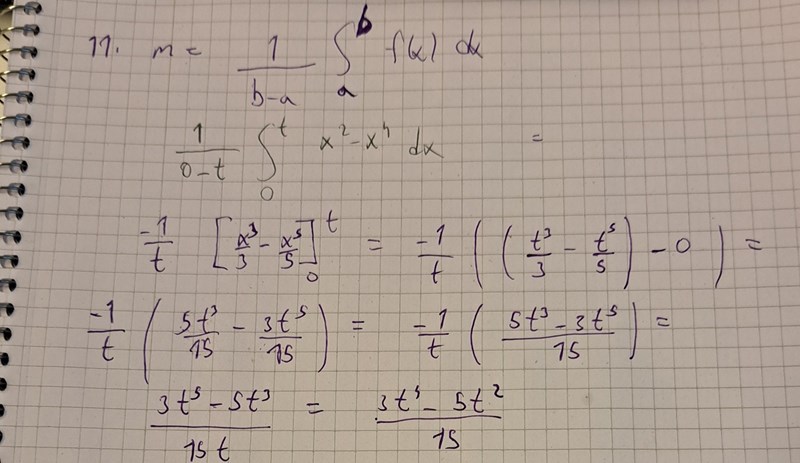 11. m = \frac{1}{b-a} \int_a^b f(x) dx
\frac{1}{0-t} \int_0^t x^2 - x^4 dx =
\frac{-1}{t} [\frac{x^3}{3} - \frac{x^5}{5}]_0^t = \frac{-1}{t} ((\frac{t^3}{3} - \frac{t^5}{5}) - 0) =
\frac{-1}{t} (\frac{5t^3}{15} - \frac{3t^5}{15}) = \frac{-1}{t} (\frac{5t^3 - 3t^5}{15}) =
\frac{3t^5 - 5t^3}{15t} = \frac{3t^4 - 5t^2}{15}